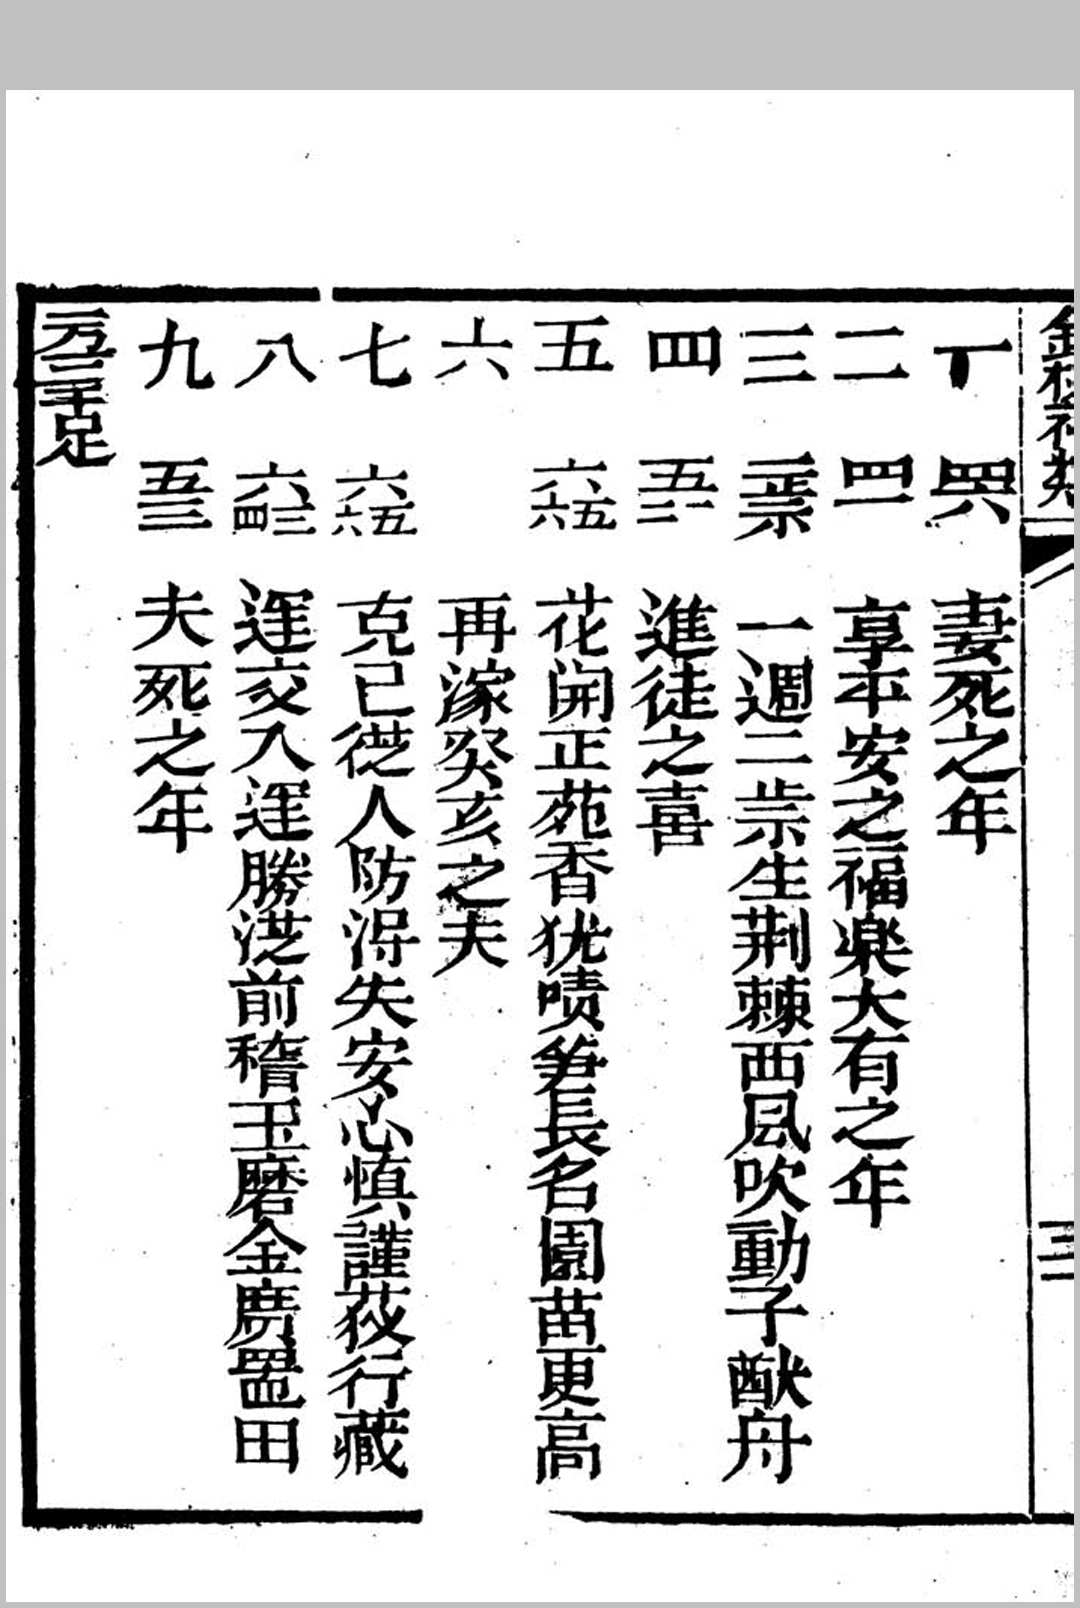 一 四六 妻死之年
二 四一 享平安之福楽大有之年
三 二歲 一週二歲生荆棘西風吹動子猷舟
四 五十二一 進徒之喜
五 六十六五 花開正苑香犹喷笋長名園苗更高
六 再嫁癸亥之夫
七 六十六五 克己従人防得失安心慎謹莜行藏
八 六十四三 運交入運勝従前稽玉磨金廣置田
九 五十三 夫死之年
一万二千足
三